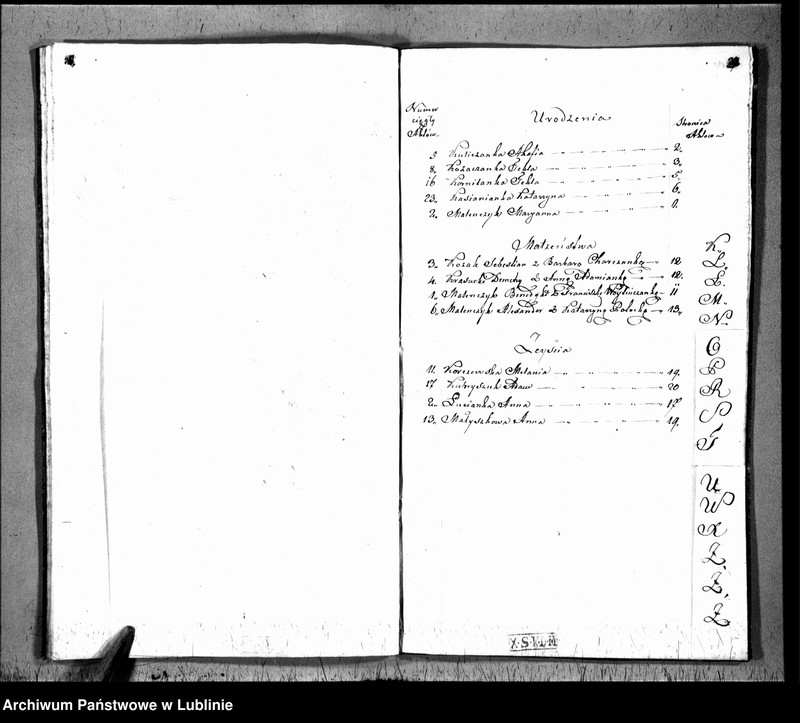 Numer ciągły Aktów.
Urodzenia
Stronica Aktowa
5 Kuliczanka Akafia 2.
8. Kozaczanka Tekla 3.
16 Kornilanka Tekla 5.
23. Kasianianka Katarzyna 6.
2. Matenczyk Maryanna 1.
Małżeństwa
3. Kozak Sebestian z Barbarą Charczanką 12
4. Krasucki Demetry z Anną Adamianką 12.
1. Matenczyk Benedykt z Franciszką 11
6. Matenczyk Alexander z Katarzyną 13.
Zeyścia
11. Korczewska Melania 19.
17 Kukryszuk 20
2. Łucianka Anna 17
13. Małyszkowa Anna 19.
K.
L.
Ł.
M.
N.
O
P
R
S
T
U
W
X
Z.
Z.
Z
X-S-k-L-N
Archiwum Państwowe w Lublinie